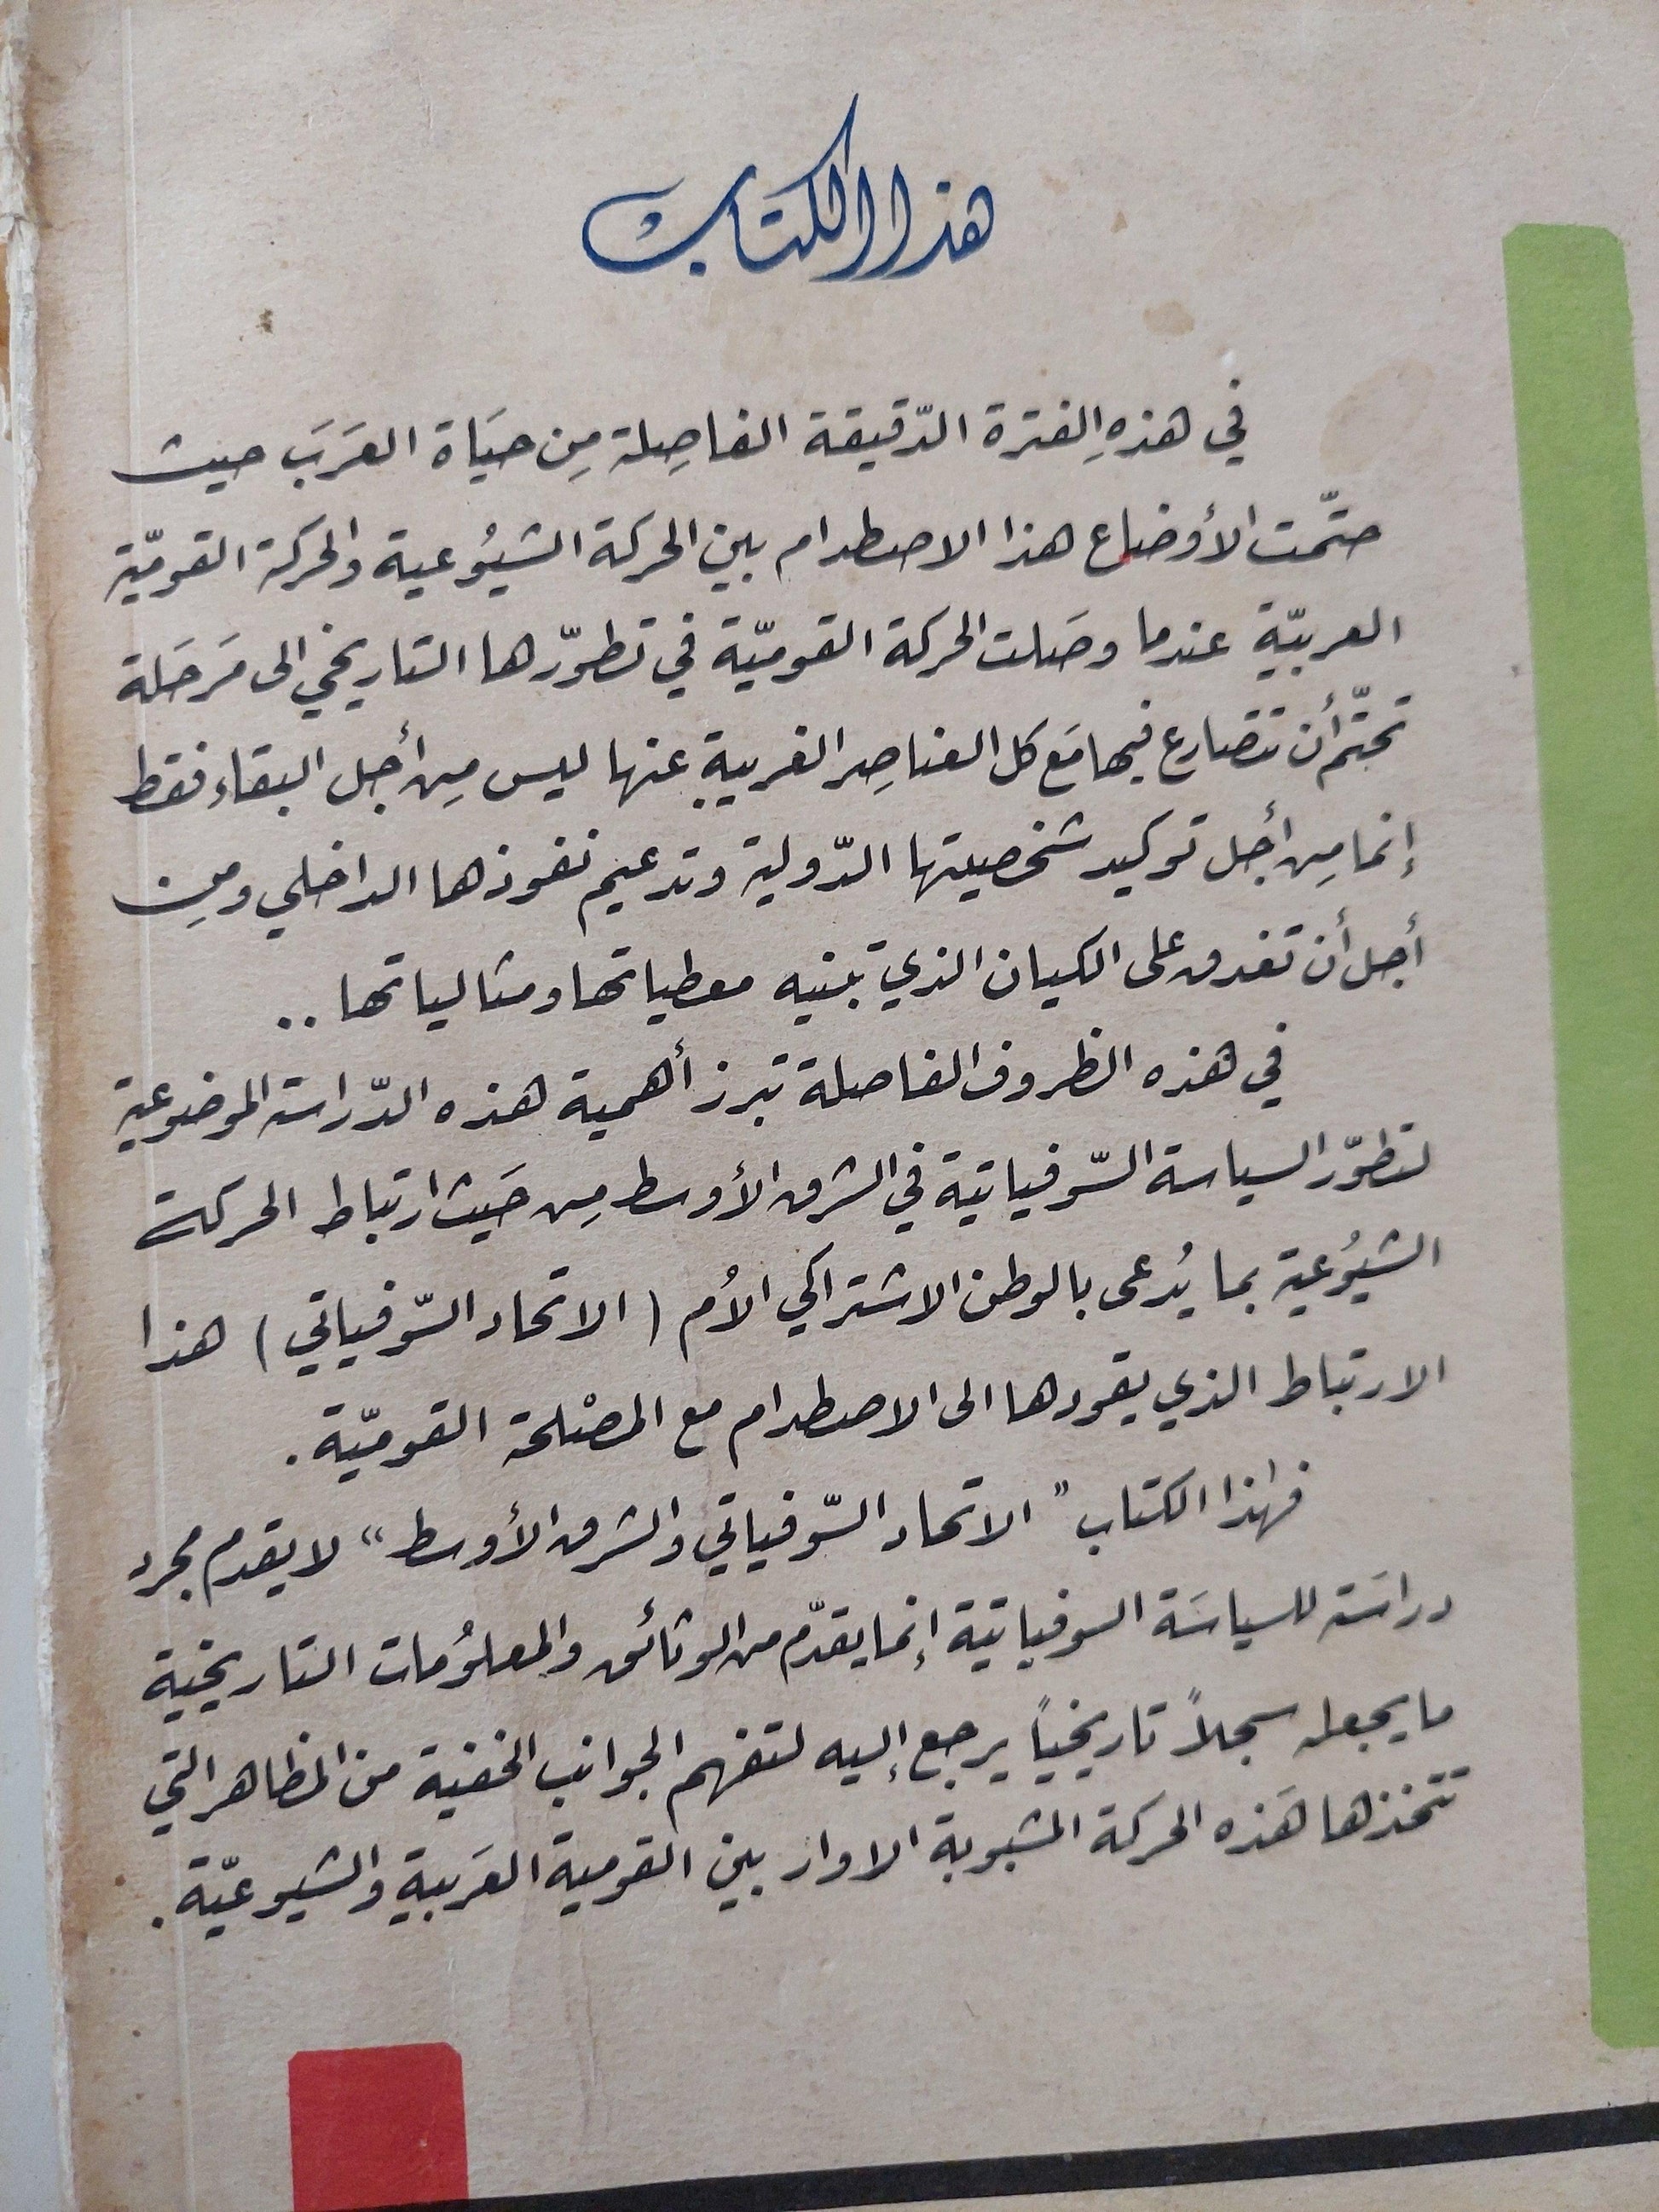 هذا الكتاب
في هذهِ الفترة الدّقيقة الفاصِلة مِن حيَاة العَرَبَ حيث
حتّمت الأوضاع هذا الاصطدام بين الحركة الشيُوعية والحركة القوميّة
العربيّة عندما وصَلت الحركة القوميّة في تطوّرها التاريخي الى مَرحَلة
تحتّم أن تتصَارع فيها مَع كل العناصِر الغريبة عنها ليس مِن أجل البقاء فقط
إنما مِن أجل توكيد شخصيتها الدّولية وتدعيم نفوذها الداخلي ومِن
أجل أن تغدق على الكيان الذي تبنيه معطياتها ومثالياتها ..
في هذه الظروف الفاصلة تبرز أهمية هذه الدّراسة الموضوعية
لتطوّر السياسة السّوفياتية في الشرق الأوسط مِن حَيث ارتباط الحركة
الشيُوُعية بما يُدعى بالوطن الاشتراكي الأُم ( الاتحاد السّوفياتي ) هذا
الارتباط الذي يقودها الى الاصطدام مع المصْلحة القوميّة .
فهذا الكتاب " الاتحاد السّوفياتي والشرق الأوسط " لا يقدم مجرد
دراسَة للسياسَة السوفياتية إنما يقدّم من الوثائق والمعلوُمات التاريخية
ما يجعله سجلاً تاريخياً يرجع إليه لتفهم الجوانب الخفية من المظاهر التي
تتخذها هَذه الحركة المشبوبة الاوار بين القومية العَربية والشيوعيّة .